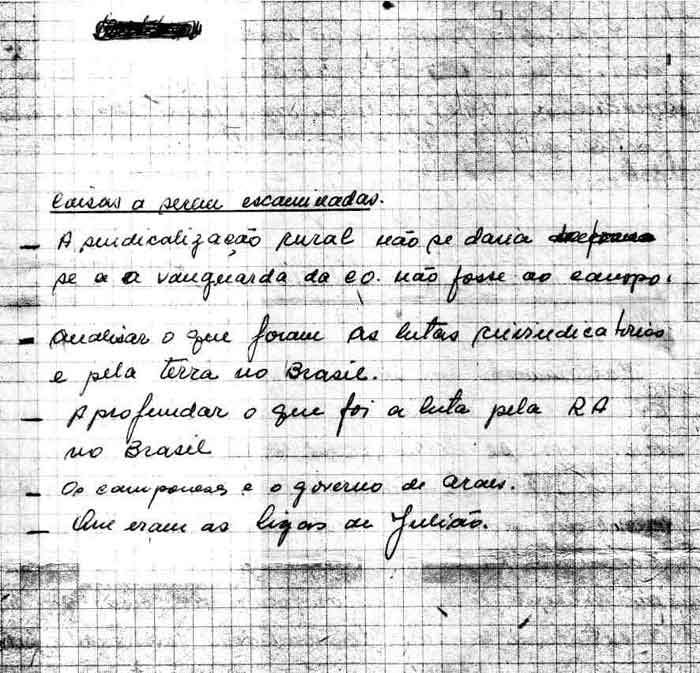 Coisas a serem escaminadas.
- A sindicalização rural não se daria
se a a vanguarda da co. não fosse ao campo.
- Analisar o que foram as lutas reivindicatorias
e pela terra no Brasil.
- Aprofundar o que foi a luta pela RA
no Brasil
- Os camponeses e o governo de Araes.
- Que eram as ligas de Julião.